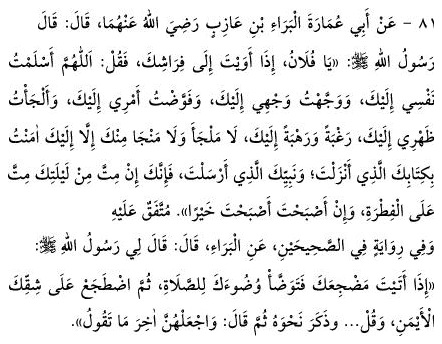 ٨١ - عَنْ أَبِي عُمَارَةَ الْبَرَاءِ بْنِ عَازِبٍ رَضِيَ اللهُ عَنْهُمَا، قَالَ: قَالَ
رَسُولُ اللهِ ﷺ: «يَا فُلَانُ، إِذَا أَوَيْتَ إِلَى فِرَاشِكَ، فَقُلْ: اَللّٰهُمَّ أَسْلَمْتُ
نَفْسِي إِلَيْكَ، وَوَجَّهْتُ وَجْهِي إِلَيْكَ، وَفَوَّضْتُ أَمْرِي إِلَيْكَ، وَأَلْجَأْتُ
ظَهْرِي إِلَيْكَ، رَغْبَةً وَرَهْبَةً إِلَيْكَ، لَا مَلْجَأَ وَلَا مَنْجَا مِنْكَ إِلَّا إِلَيْكَ اٰمَنْتُ
بِكِتَابِكَ الَّذِي أَنْزَلْتَ؛ وَنَبِيِّكَ الَّذِي أَرْسَلْتَ، فَإِنَّكَ إِنْ مِتَّ مِنْ لَيْلَتِكَ مِتَّ
عَلَى الْفِطْرَةِ، وَإِنْ أَصْبَحْتَ أَصْبَحْتَ خَيْرًا». مُتَّفَقٌ عَلَيْهِ
وَفِي رِوَايَةٍ فِي الصَّحِيحَيْنِ، عَنِ الْبَرَاءِ، قَالَ: قَالَ لِي رَسُولُ اللهِ ﷺ:
«إِذَا أَتَيْتَ مَضْجِعَكَ فَتَوَضَّأْ وُضُوءَكَ لِلصَّلَاةِ، ثُمَّ اضْطَجِعْ عَلَى شِقِّكَ
الْأَيْمَنِ، وَقُلْ... وَذَكَرَ نَحْوَهُ ثُمَّ قَالَ: وَاجْعَلْهُنَّ اٰخِرَ مَا تَقُولُ».